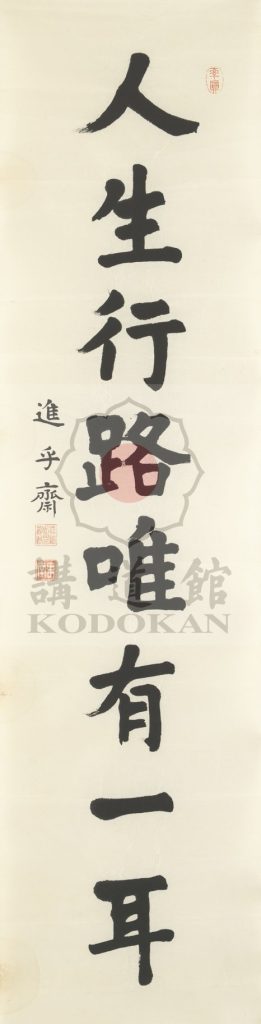 人生行路唯有一耳
進乎齋
講道館
KODOKAN